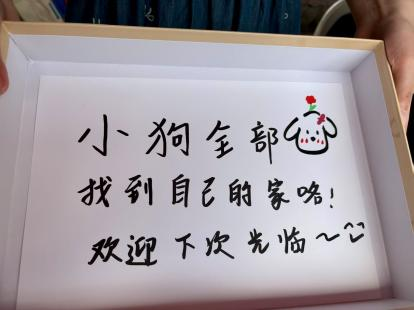 小狗全部
找到自己的家咯!
欢迎下次光临~